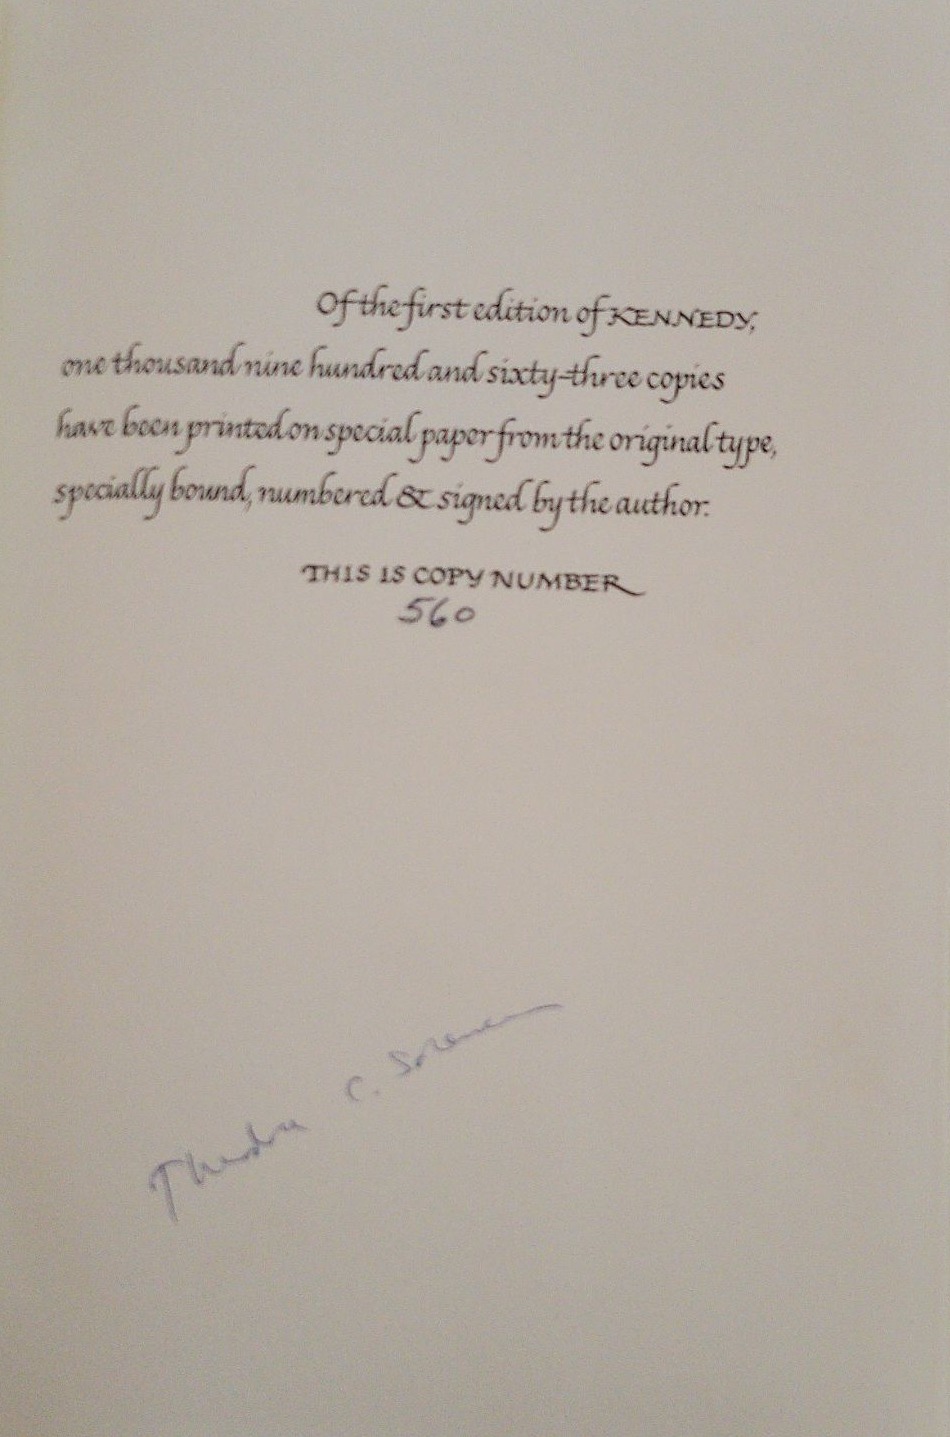 Of the first edition of KENNEDY,
one thousand nine hundred and sixty-three copies
have been printed on special paper from the original type,
specially bound, numbered & signed by the author.
THIS IS COPY NUMBER
560
Theodore C. Sorensen